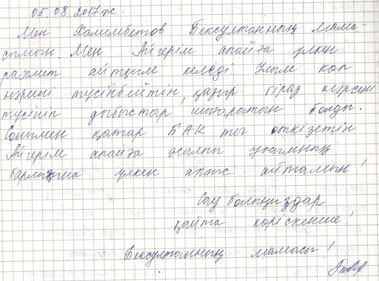 05.08.2017ж.
Мен Халимбетов Бексултанның мама-
сымын. Мен Айгерім апайға үлкен
рахмет айтқым келеді көп
нәрсені түсінбейтін, қазір бірақ
түсініп дыбыстар шығаратын болды.
Сонымен қатар БАК ты өткізетін
Айгерім апайға жалпы ұжымның
барлығына үлкен алғыс айтамын!
Сау болыңыздар
қайта көріскенше!
Бексултанның мамасы!